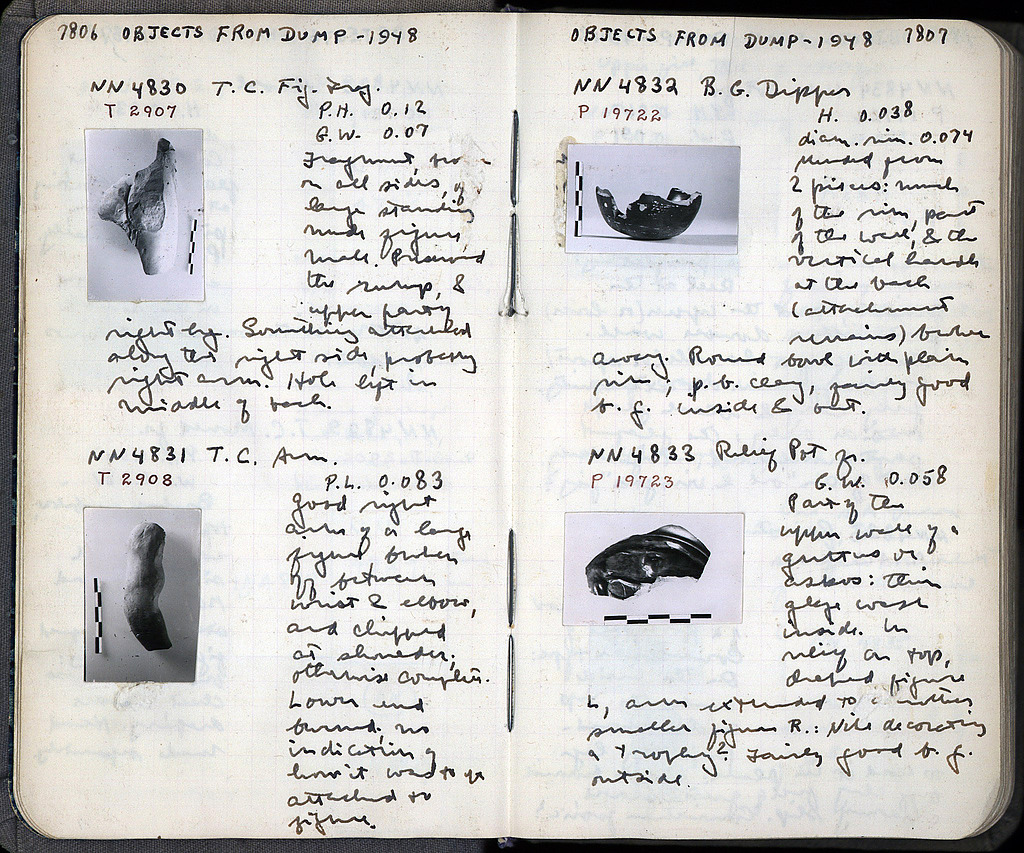 7806 OBJECTS FROM DUMP - 1948
NN 4830 T. C. Fig. Frag.
T 2907
P.H. 0.12
G.W. 0.07
Fragment,
on all sides, of
large standing
nude figure
male. Preserved
the rump, &
upper part
right leg. Something attached
along the right side, probably
right arm. Hole left in
middle of back.
NN 4831 T. C. Arm.
T 2908
P.L. 0.083
Good right
arm of a large
figure broken
off between
wrist & elbow,
and chipped
at shoulder;
otherwise complete.
Lower end
burned, no
indication of
how it was to
attached to
figure.
OBJECTS FROM DUMP - 1948 7807
NN 4832 B. G. Dipper
P 19722
H. 0.038
diam. rim. 0.074
Mended from
2 pieces: much
of the rim, part
of the wall, & the
vertical handle
at the back
(attachment
remains) broken
away. Round bowl with plain
rim; p. b. clay, fairly good
b. g. inside & out.
NN 4833 Relief Pot fr.
P 19723
G. W. 0.058
Part of the
upper wall of a
guttus or
askos: thin
glaze wash
inside. In
relief on top,
draped figure
L, arm extended to another
smaller figure R.: Nike decorating
a trophy? Fairly good b. g.
outside.